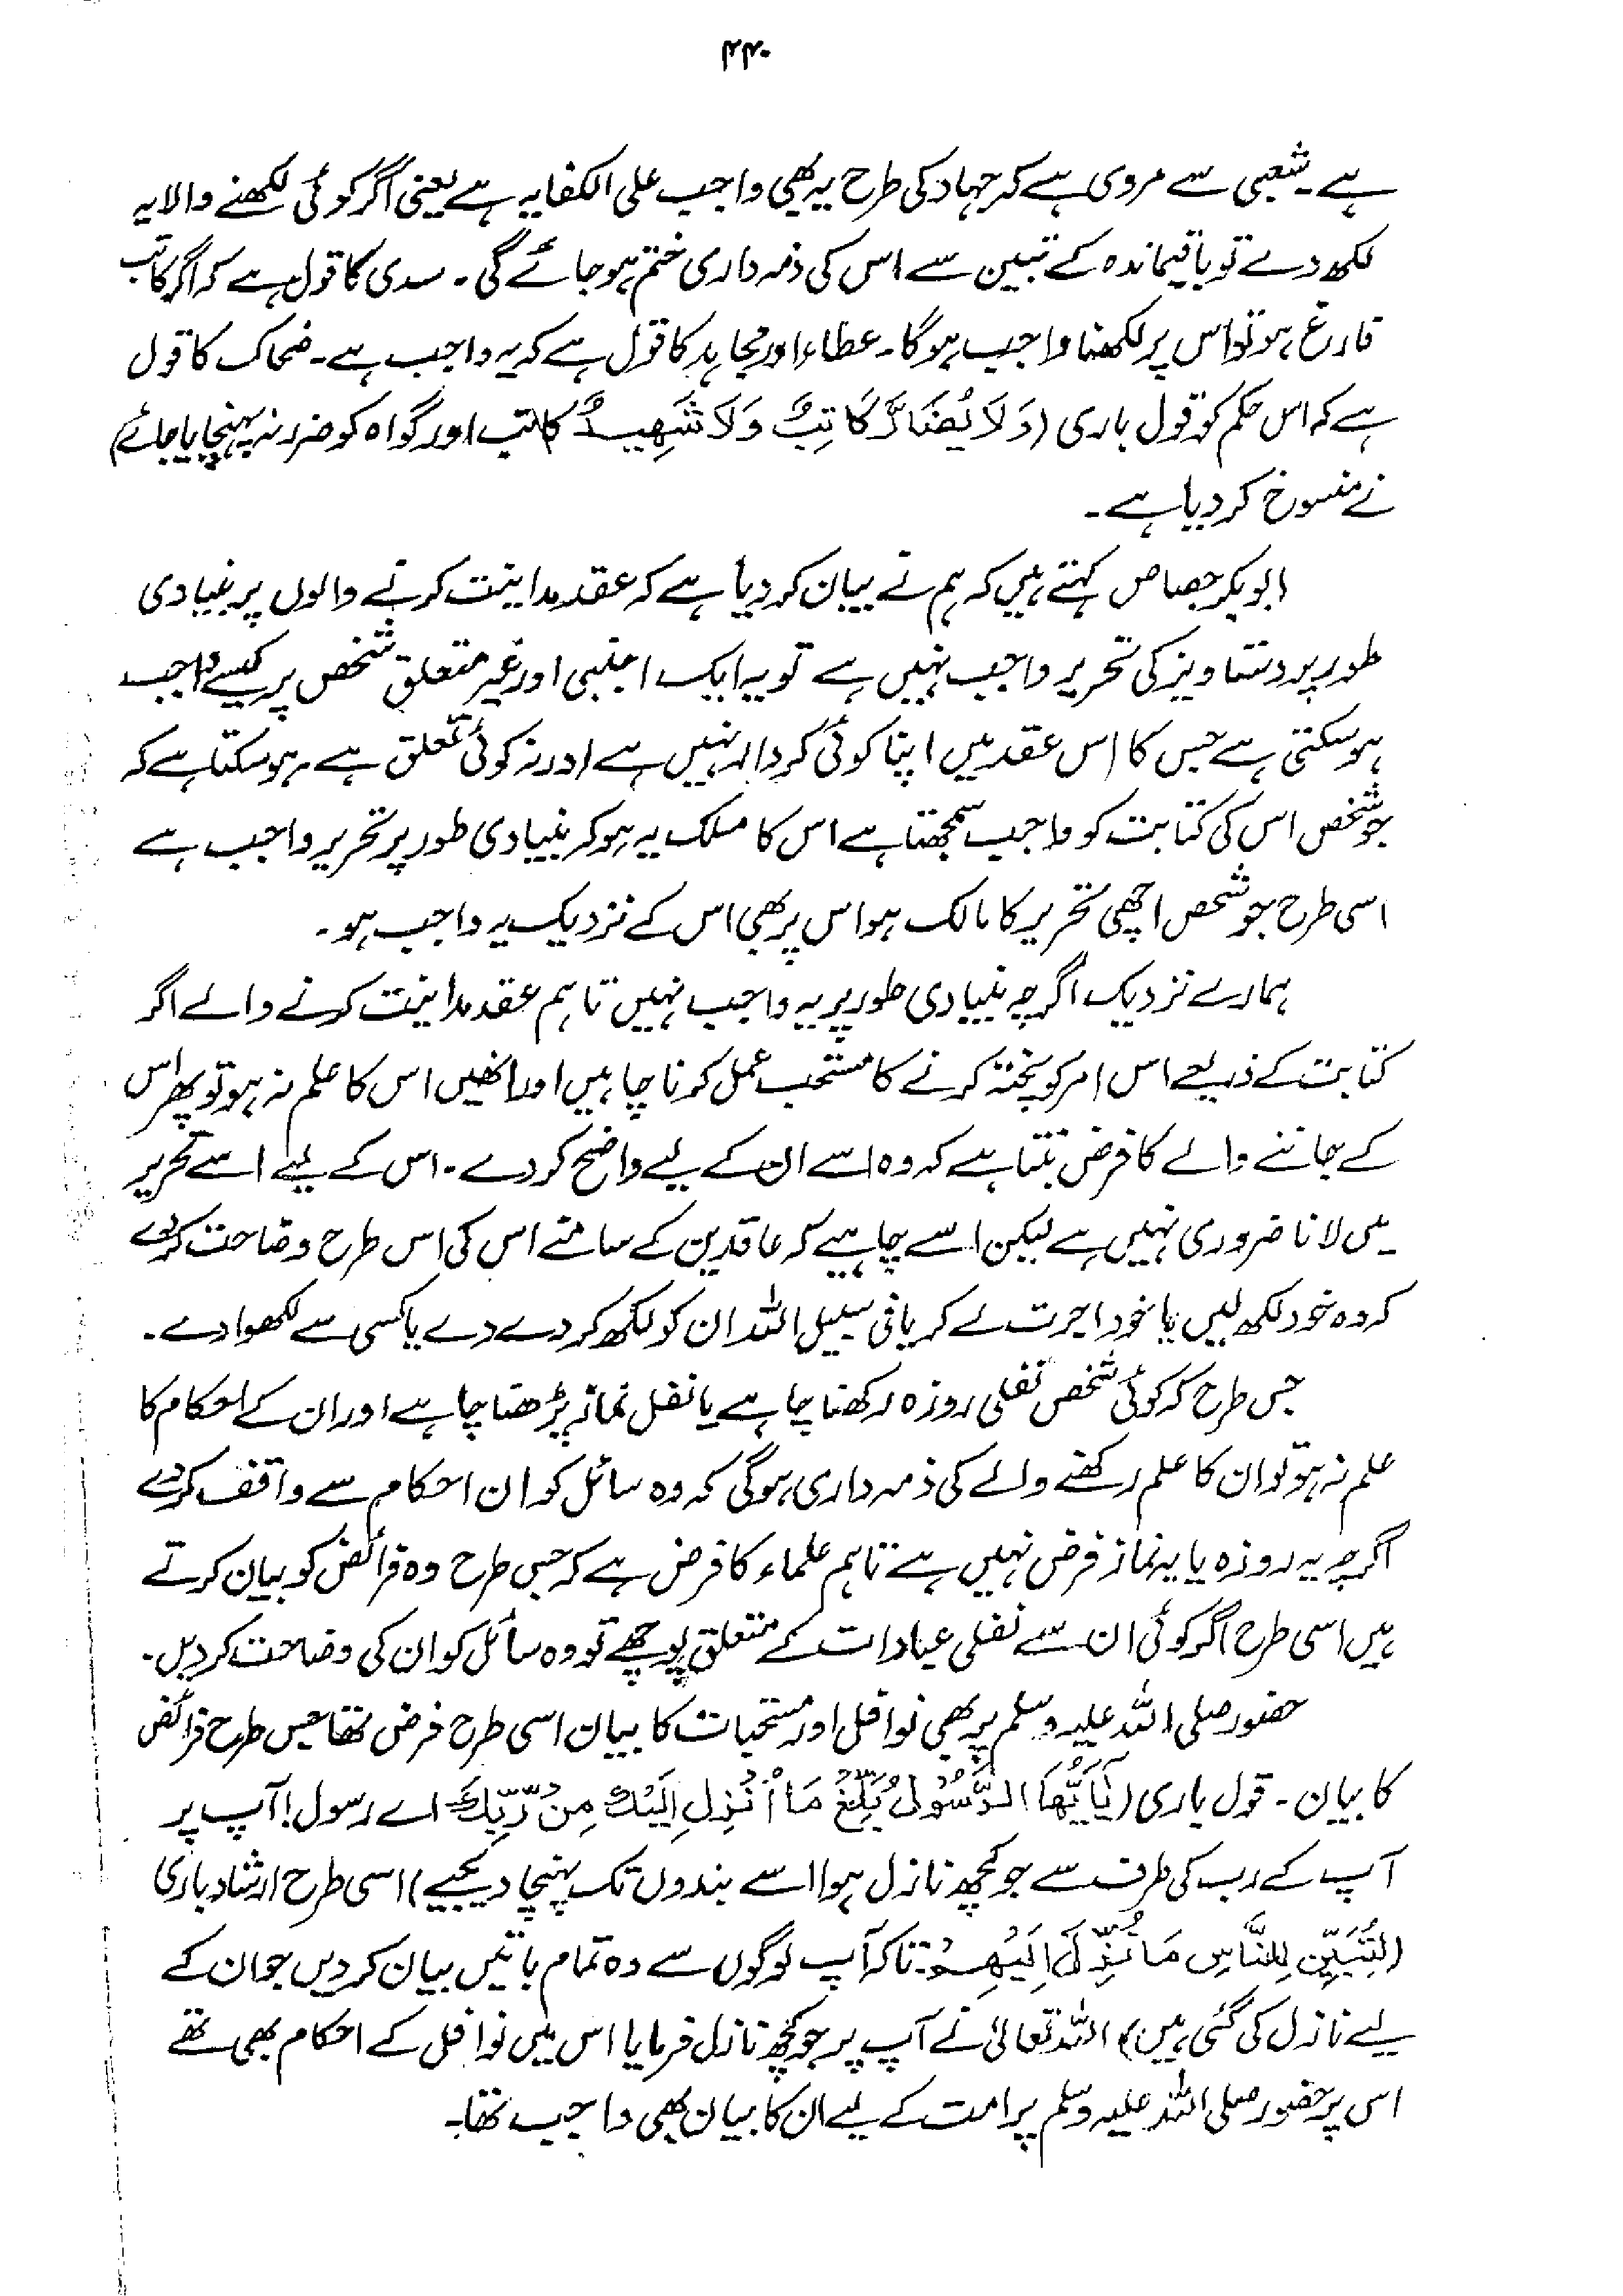 ۴۴۰
ہے۔ شعبی سے مروی ہے کہ جہاد کی طرح یہ بھی واجب علی الکفایہ ہے یعنی اگر کوئی لکھنے والا یہ
لکھ دے تو باقیماندہ کے تبیین سے اس کی ذمہ داری ختم ہو جائے گی۔ سدی کا قول ہے کہ اگر کاتب
فارغ ہو تو اس پر لکھنا واجب ہوگا۔ عطاء اور مجاہد کا قول ہے کہ یہ واجب ہے۔ ضحاک کا قول
ہے کہ اس حکم کو قول باری (وَلَا یُضَارَّ کَاتِبٌ وَلَا شَهِیدٌ کاتب اور گواہ کو ضرر نہ پہنچایا جائے)
نے منسوخ کر دیا ہے۔
ابوبکر جصاص کہتے ہیں کہ ہم نے بیان کر دیا ہے کہ عقد مداینت کرنے والوں پر بنیادی
طور پر دستاویز کی تحریر واجب نہیں ہے تو یہ ایک اجنبی اور غیر متعلق شخص پر کیسے واجب
ہو سکتی ہے جس کا اس عقد میں اپنا کوئی کردار نہیں ہے اور نہ کوئی تعلق ہے۔ ہو سکتا ہے کہ
جو شخص اس کی کتابت کو واجب سمجھتا ہے اس کا مسلک یہ ہو کہ بنیادی طور پر تحریر واجب ہے
اسی طرح جو شخص اچھی تحریر کا مالک ہو اس پر بھی اس کے نزدیک یہ واجب ہو۔
ہمارے نزدیک اگرچہ بنیادی طور پر یہ واجب نہیں تاہم عقد مداینت کرنے والے اگر
کتابت کے ذریعے اس امر کو پختہ کرنے کا مستحب عمل کرنا چاہیں اور انھیں اس کا علم نہ ہو تو پھر اس
کے جاننے والے کا فرض بنتا ہے کہ وہ اسے ان کے لیے واضح کر دے۔ اس کے لیے اسے تحریر
میں لانا ضروری نہیں ہے لیکن اسے چاہیے کہ عاقدین کے سامنے اس کی اس طرح وضاحت کر دے
کہ وہ خود لکھ لیں یا خود اجرت لے کر یا فی سبیل اللہ ان کو لکھ کر دے دے یا کسی سے لکھوا دے۔
جس طرح کہ کوئی شخص نفلی روزہ رکھنا چاہے یا نفل نماز پڑھنا چاہے اور ان کے احکام کا
علم نہ ہو تو ان کا علم رکھنے والے کی ذمہ داری ہوگی کہ وہ سائل کو ان احکام سے واقف کر دے
اگرچہ یہ روزہ یا یہ نماز فرض نہیں ہے تاہم علماء کا فرض ہے کہ جس طرح وہ فرائض کو بیان کرتے
ہیں اسی طرح اگر کوئی ان سے نفلی عبادات کے متعلق پوچھے تو وہ سائل کو ان کی وضاحت کر دیں۔
حضور صلی اللہ علیہ وسلم پر بھی نوافل اور مستحبات کا بیان اسی طرح فرض تھا جس طرح فرائض
کا بیان۔ قول باری (یٰٓاَیُّهَا الرَّسُوْلُ بَلِّغْ مَا اُنْزِلَ اِلَیْكَ مِنْ رَّبِّكَ اے رسول! آپ پر
آپ کے رب کی طرف سے جو کچھ نازل ہوا اسے بندوں تک پہنچا دیجیے) اسی طرح ارشاد باری
(لِتُبَیِّنَ لِلنَّاسِ مَا نُزِّلَ اِلَیْهِمْ، تاکہ آپ لوگوں سے وہ تمام باتیں بیان کر دیں جو ان کے
لیے نازل کی گئی ہیں) اللہ تعالیٰ نے آپ پر جو کچھ نازل فرمایا اس میں نوافل کے احکام بھی تھے
اس پر حضور صلی اللہ علیہ وسلم پر امت کے لیے ان کا بیان بھی واجب تھا۔